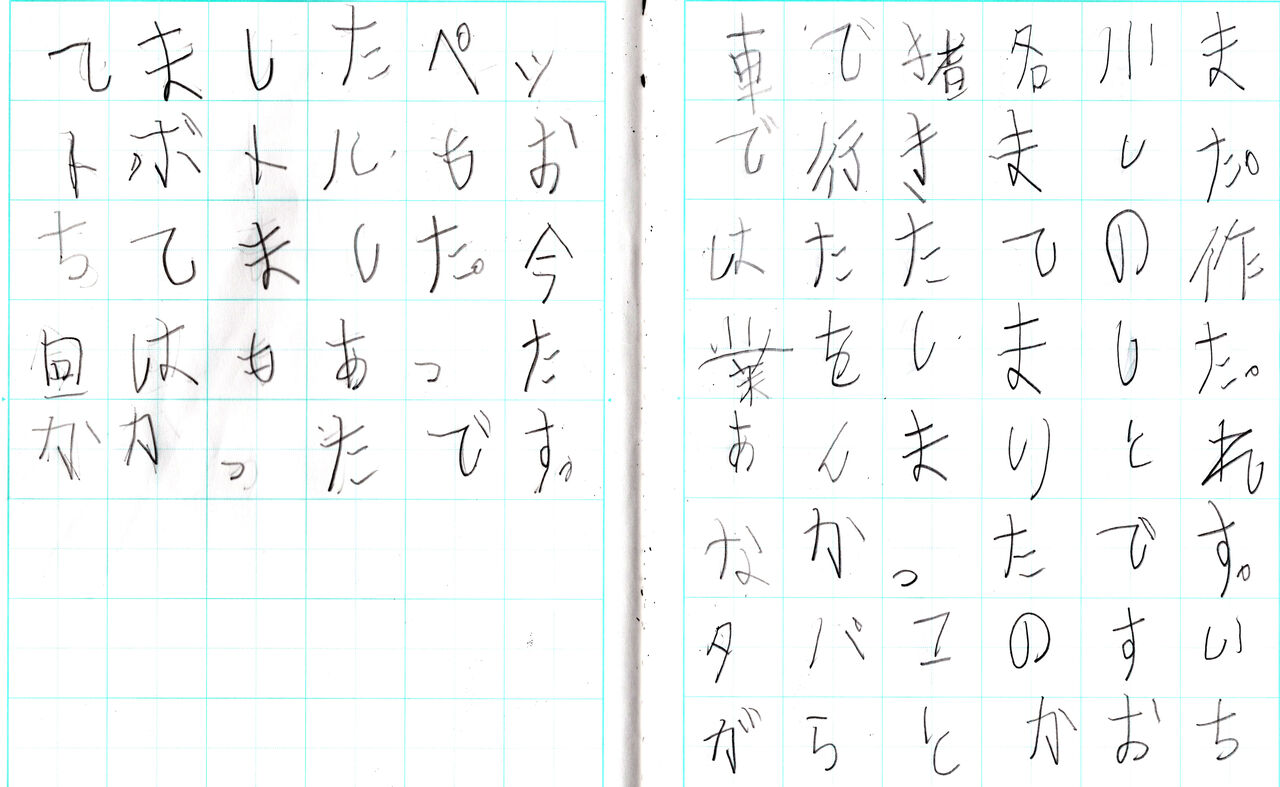 車で猪名川ま
で行きました。
はたたての作
業をしました。
あんまりとれ
なかったです。
タバエのすい
がらとかおち
てましたペッ
トボトルもお
ちてました。今
回はもあった
かかったです。